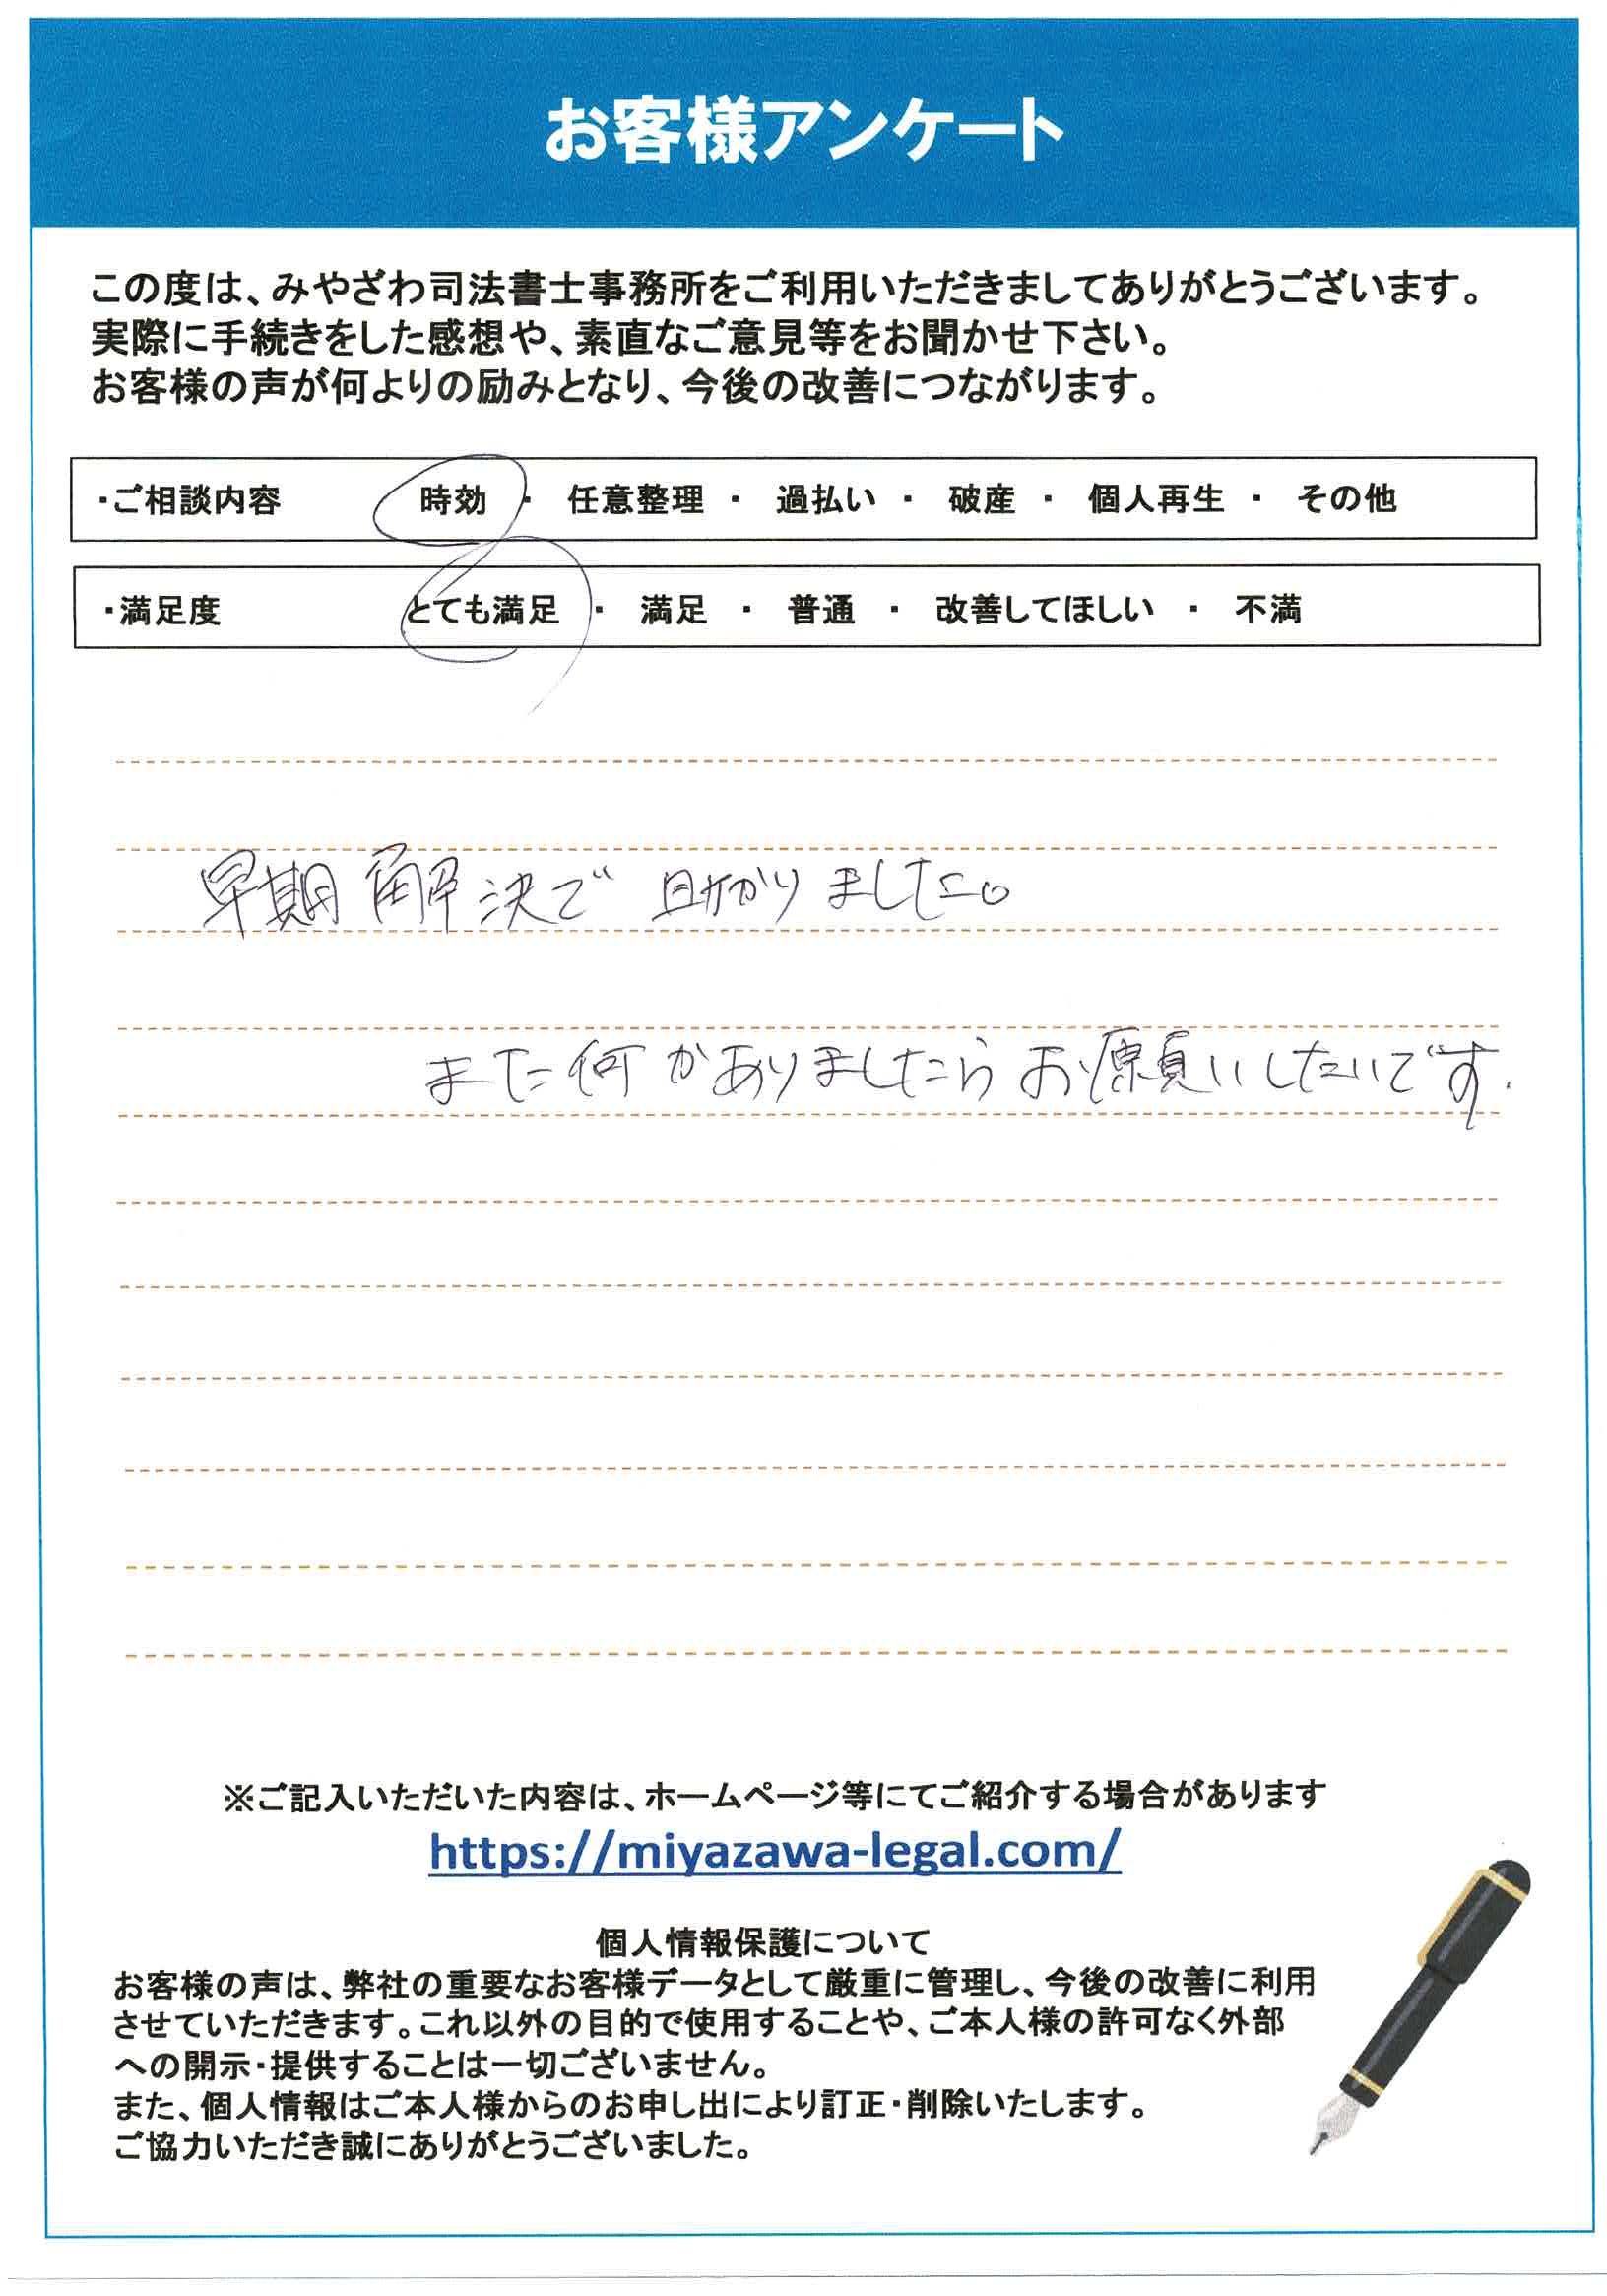 お客様アンケート
この度は、みやざわ司法書士事務所をご利用いただきましてありがとうございます。
実際に手続きをした感想や、素直なご意見等をお聞かせ下さい。
お客様の声が何よりの励みとなり、今後の改善につながります。
・ご相談内容 時効 ・ 任意整理 ・ 過払い ・ 破産 ・ 個人再生 ・ その他
・満足度 とても満足 ・ 満足 ・ 普通 ・ 改善してほしい ・ 不満
早期解決で助かりました。
また何かありましたらお願いしたいです.
※ご記入いただいた内容は、ホームページ等にてご紹介する場合があります
https://miyazawa-legal.com/
個人情報保護について
お客様の声は、弊社の重要なお客様データとして厳重に管理し、今後の改善に利用
させていただきます。これ以外の目的で使用することや、ご本人様の許可なく外部
への開示・提供することは一切ございません。
また、個人情報はご本人様からのお申し出により訂正・削除いたします。
ご協力いただき誠にありがとうございました。